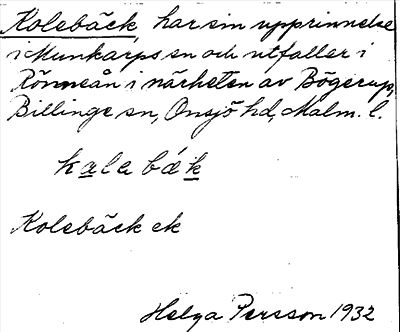 Kolebäck, har sin upprinnelse
i Munkarps sn och utfaller i
Rönneån i närheten av Bögerup,
Billinge sn, Onsjö hd, Malm. l.
kalabák
Kolebäck ek
Helga Persson 1932